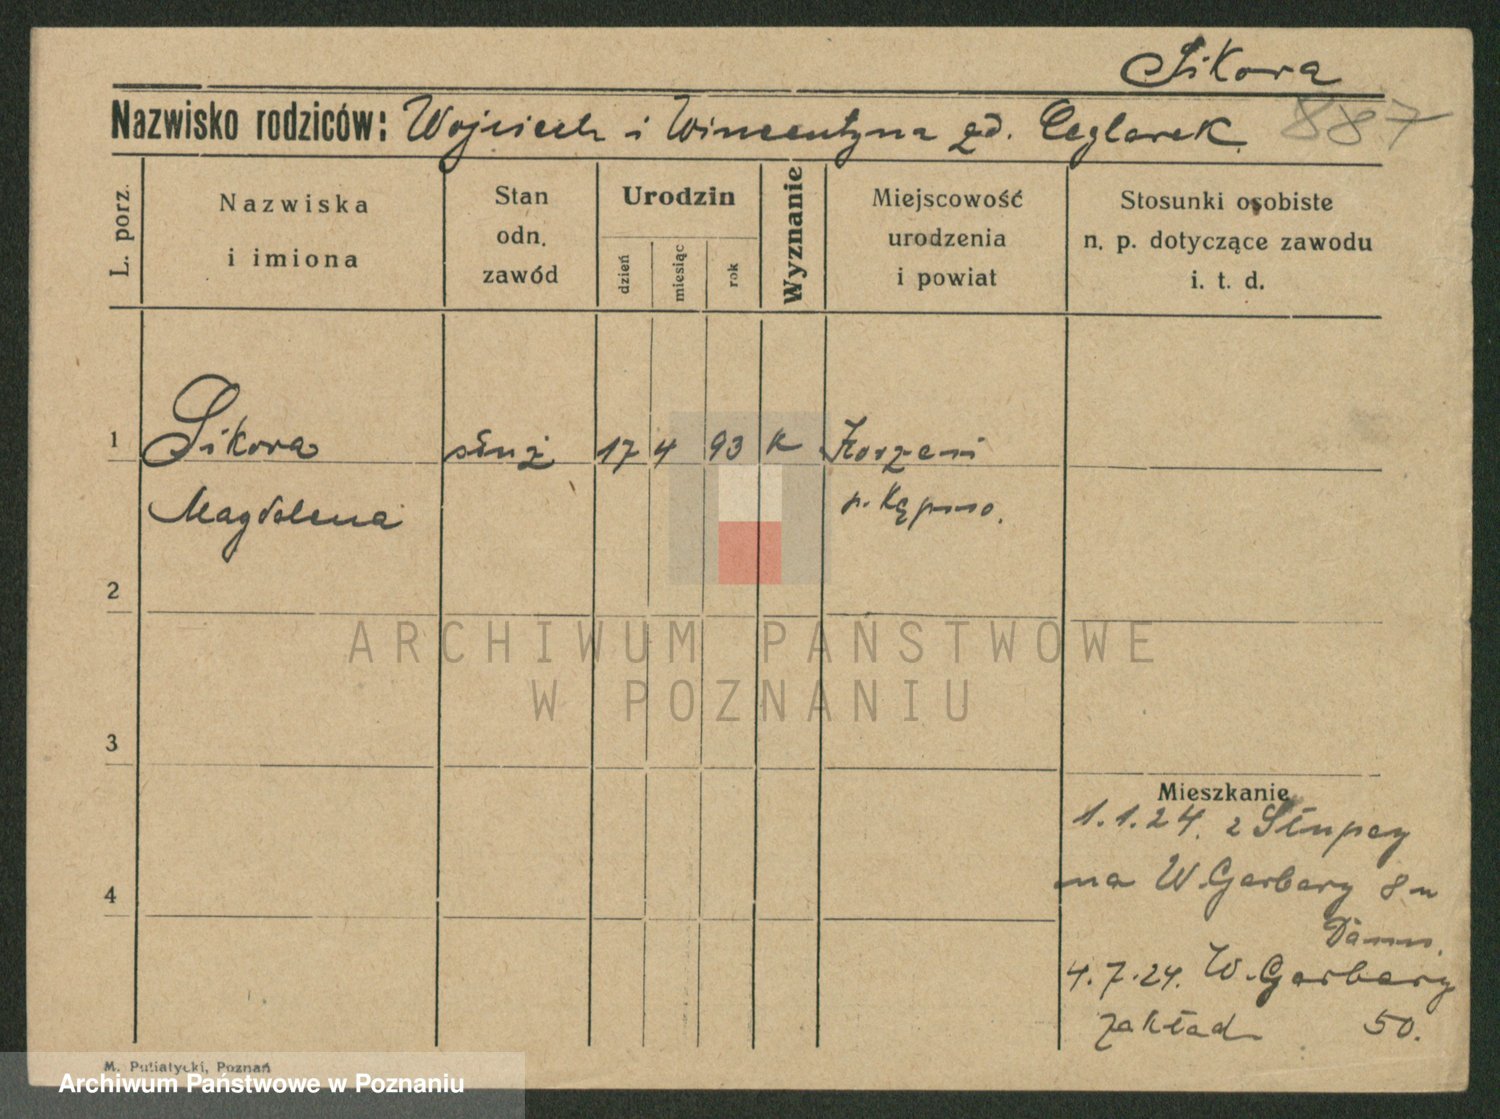 Sikora
Nazwisko rodziców: Wojciech i Wincentyna zd. Ceglarek
887
L. porz.
Nazwiska i imiona
Stan odn. zawód
Urodzin
dzień miesiąc rok
Wyznanie
Miejscowość urodzenia i powiat
Stosunki osobiste n. p. dotyczące zawodu i. t. d.
1 Sikora służ 17 4 93 k Korzeni
Magdalena p. Kępno.
2
ARCHIWUM PAŃSTWOWE
W POZNANIU
3
Mieszkanie
1.1.24. z Słupcy
na W. Garbary 8
4
4.7.24. W. Garbary
zakład 50.
M. Putiatycki, Poznań
Archiwum Państwowe w Poznaniu